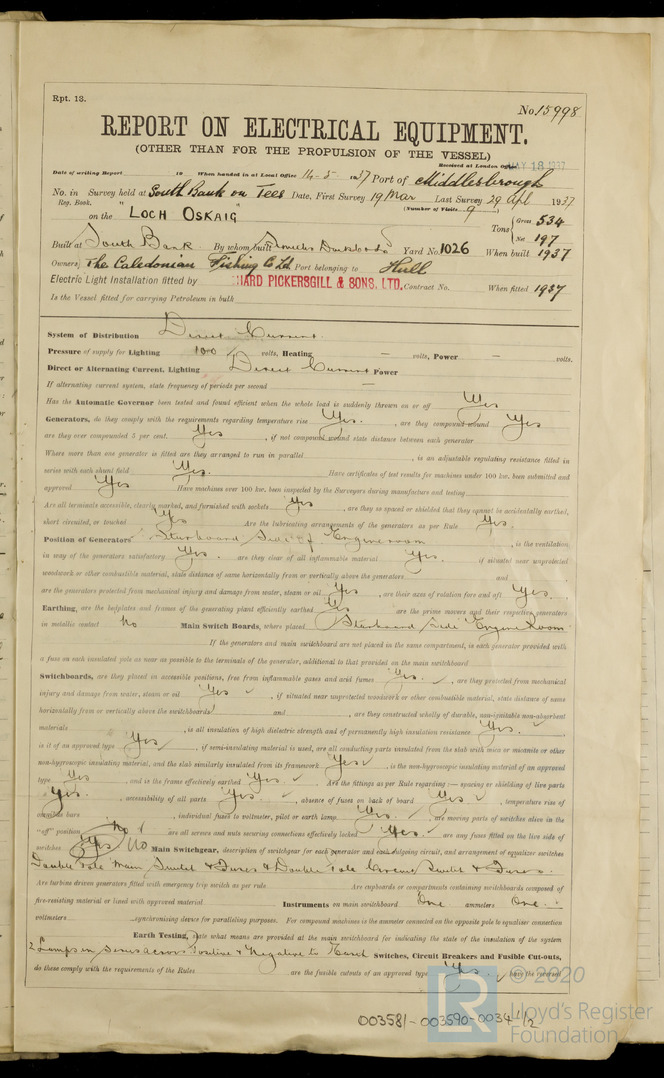 Rpt. 13.
No. 15998
REPORT ON ELECTRICAL EQUIPMENT.
(OTHER THAN FOR THE PROPULSION OF THE VESSEL)
Received at London Office MAY 18 1937
Date of writing Report 19 When handed in at Local Office 14-5-1937 Port of Middlesbrough
No. in Survey held at South Bank on Tees Date, First Survey 19 Mar Last Survey 29 Apl 1937
Reg. Book. (Number of Visits 9)
on the "LOCH OSKAIG" Tons { Gross 534
Net 197
Built at South Bank By whom built Yard No. 1026 When built 1937
Owners The Caledonian Fishing Co Ld Port belonging to Hull
Electric Light Installation fitted by HARD PICKERSGILL & SONS, LTD. Contract No. When fitted 1937
Is the Vessel fitted for carrying Petroleum in bulk
System of Distribution Direct Current.
Pressure of supply for Lighting 100 volts, Heating — volts, Power — volts.
Direct or Alternating Current, Lighting Direct Current Power
If alternating current system, state frequency of periods per second —
Has the Automatic Governor been tested and found efficient when the whole load is suddenly thrown on or off Yes
Generators, do they comply with the requirements regarding temperature rise Yes. , are they compound wound Yes
are they over compounded 5 per cent. Yes , if not compound wound state distance between each generator
Where more than one generator is fitted are they arranged to run in parallel , is an adjustable regulating resistance fitted in
series with each shunt field Yes. Have certificates of test results for machines under 100 kw. been submitted and
approved Yes Have machines over 100 kw. been inspected by the Surveyors during manufacture and testing
Are all terminals accessible, clearly marked, and furnished with sockets Yes , are they so spaced or shielded that they cannot be accidentally earthed,
short circuited, or touched Yes Are the lubricating arrangements of the generators as per Rule Yes.
Position of Generators Starboard Side of Engineroom , is the ventilation
in way of the generators satisfactory Yes. are they clear of all inflammable material Yes. if situated near unprotected
woodwork or other combustible material, state distance of same horizontally from or vertically above the generators and
are the generators protected from mechanical injury and damage from water, steam or oil Yes , are their axes of rotation fore and aft Yes.
Earthing, are the bedplates and frames of the generating plant efficiently earthed Yes are the prime movers and their respective generators
in metallic contact No Main Switch Boards, where placed Starboard Side Engine Room
If the generators and main switchboard are not placed in the same compartment, is each generator provided with
a fuse on each insulated pole as near as possible to the terminals of the generator, additional to that provided on the main switchboard
Switchboards, are they placed in accessible positions, free from inflammable gases and acid fumes Yes. ✓ , are they protected from mechanical
injury and damage from water, steam or oil Yes ✓ , if situated near unprotected woodwork or other combustible material, state distance of same
horizontally from or vertically above the switchboards and , are they constructed wholly of durable, non-ignitable non-absorbent
materials , is all insulation of high dielectric strength and of permanently high insulation resistance Yes. ✓
is it of an approved type Yes ✓ , if semi-insulating material is used, are all conducting parts insulated from the slab with mica or micanite or other
non-hygroscopic insulating material, and the slab similarly insulated from its framework Yes ✓ , is the non-hygroscopic insulating material of an approved
type Yes , and is the frame effectively earthed Yes. ✓ Are the fittings as per Rule regarding:— spacing or shielding of live parts
Yes. , accessibility of all parts Yes. ✓ , absence of fuses on back of board Yes ✓ , temperature rise of
omnibus bars , individual fuses to voltmeter, pilot or earth lamp Yes. ✓ , are moving parts of switches alive in the
"off" position No ✓ are all screws and nuts securing connections effectively locked Yes. ✓ are any fuses fitted on the live side of
switches Yes No Main Switchgear, description of switchgear for each generator and each outgoing circuit, and arrangement of equalizer switches
Double Pole Main Switch & Fuses & Double Pole Circuit Switch & Fuses.
Are turbine driven generators fitted with emergency trip switch as per rule Are cupboards or compartments containing switchboards composed of
fire-resisting material or lined with approved material Instruments on main switchboard One ammeters One.
voltmeters synchronising device for paralleling purposes. For compound machines is the ammeter connected on the opposite pole to equaliser connection
Earth Testing, state what means are provided at the main switchboard for indicating the state of the insulation of the system
2 Lamps in Series across Positive & Negative to Earth Switches, Circuit Breakers and Fusible Cut-outs,
do these comply with the requirements of the Rules are the fusible cutouts of an approved type Yes. ✓ have the reversed
003581-003590-0034 1/2
© 2020
Lloyd's Register
Foundation